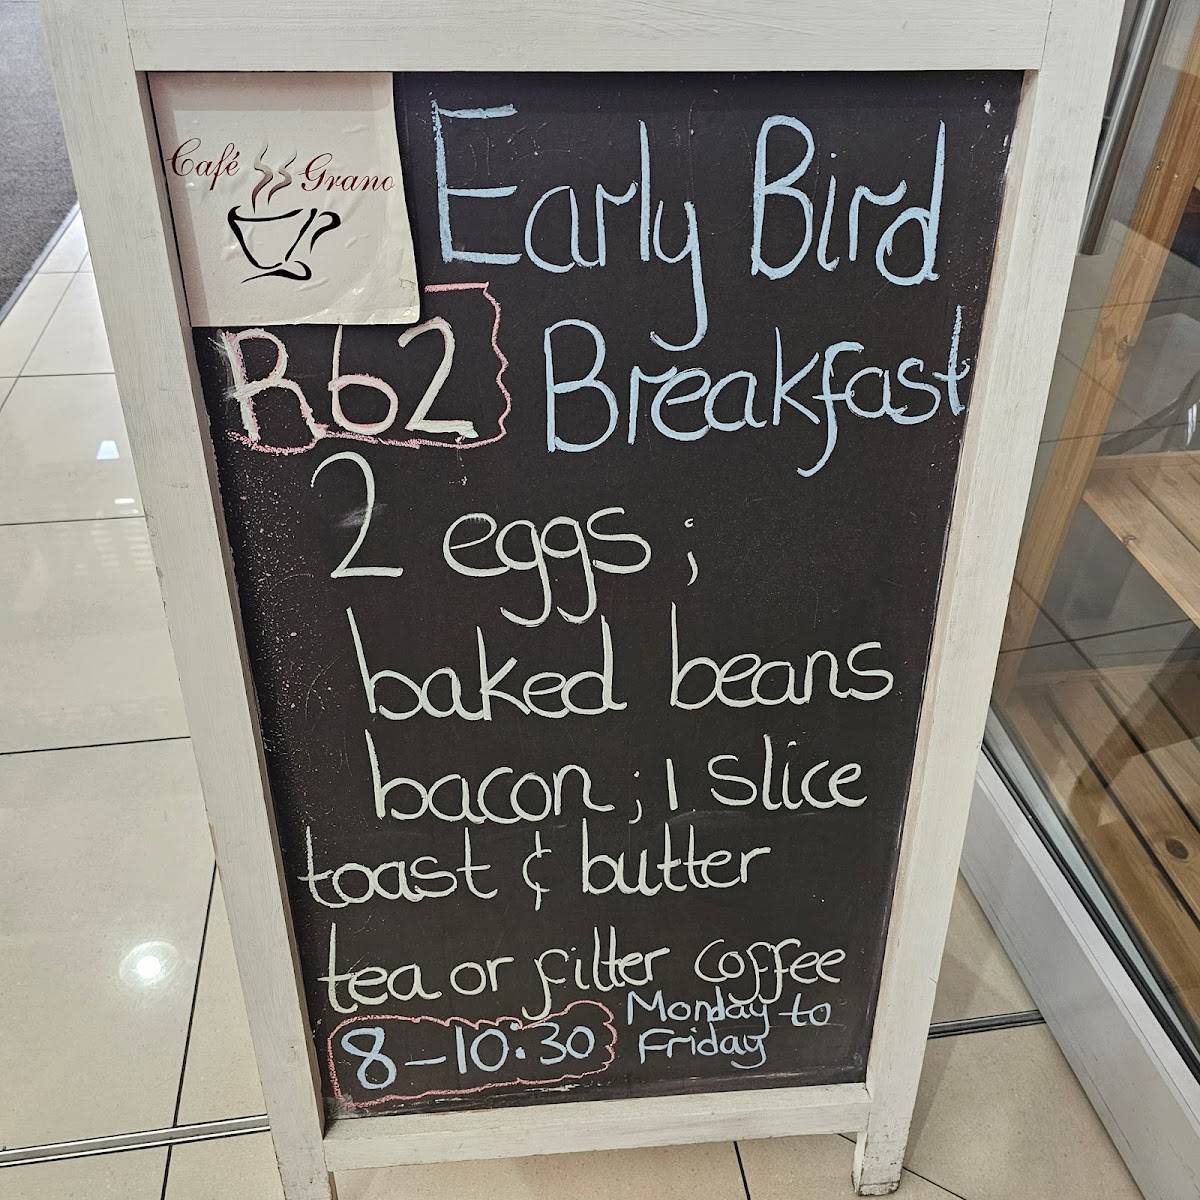 Café Grano
Early Bird
R62 Breakfast
2 eggs ;
baked beans
bacon ; 1 slice
toast & butter
tea or filter coffee
8-10:30 Monday to
Friday